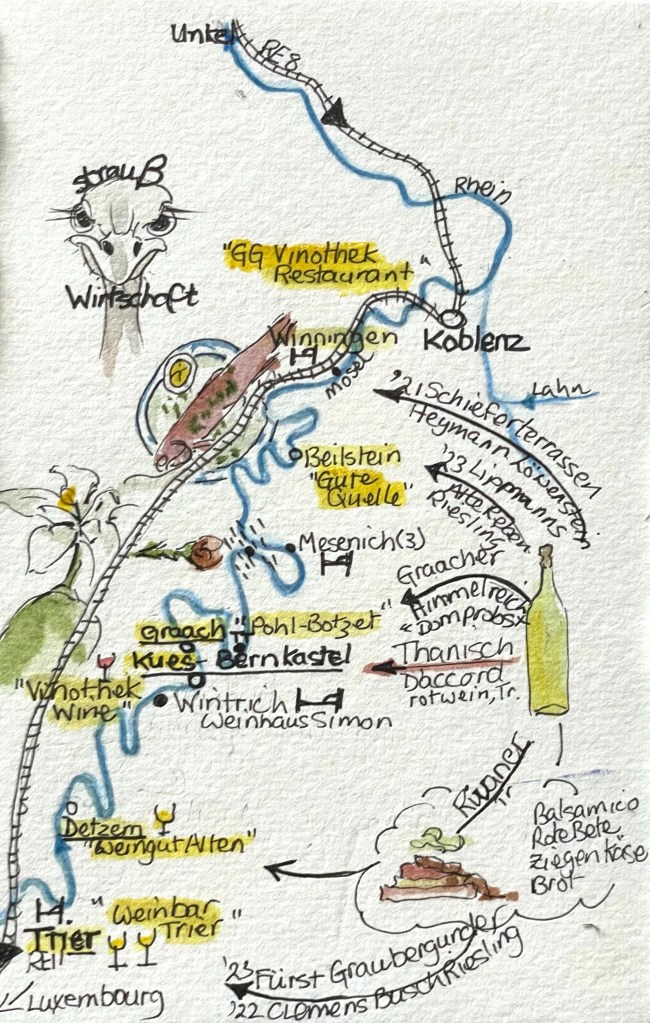 Unkel
RE8
Rhein
strauß
Wirtschaft
"GG Vinothek
Restaurant"
Koblenz
Winningen
H
Mosel
Lahn
'21 Schieferterrassen
Heymann Löwenstein
Beilstein
"Gute
Quelle"
'23 Lippmanns
Alte Reben
Riesling
Mesenich(3)
H
Graacher
Himmelreich
"Domprobst"
Graach
"Pohl-Botzet"
Kues-Bernkastel
Thanisch
Daccord
rotwein, Tr.
"Vinothek
Wine"
Wintrich H
Weinhaus Simon
Rivaner
Tr
Balsamico
Rote Bete
Ziegenkäse
Brot
Detzem
"Weingut Alten"
H.
Trier
"Weinbar
Trier"
RE11
Luxembourg
'23 Fürst Grauburgunder
'22 Clemens Busch Riesling